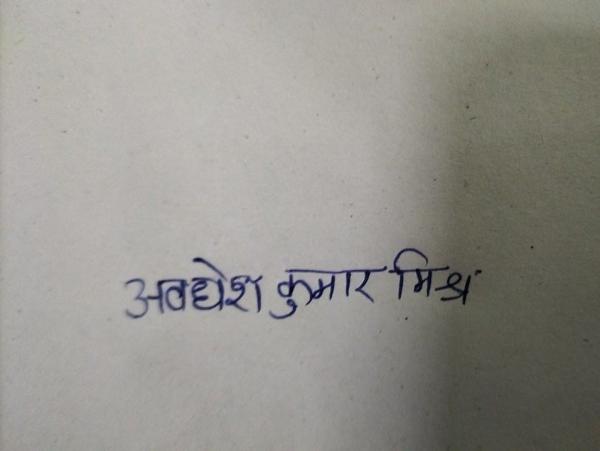 अवधेश कुमार मिश्र